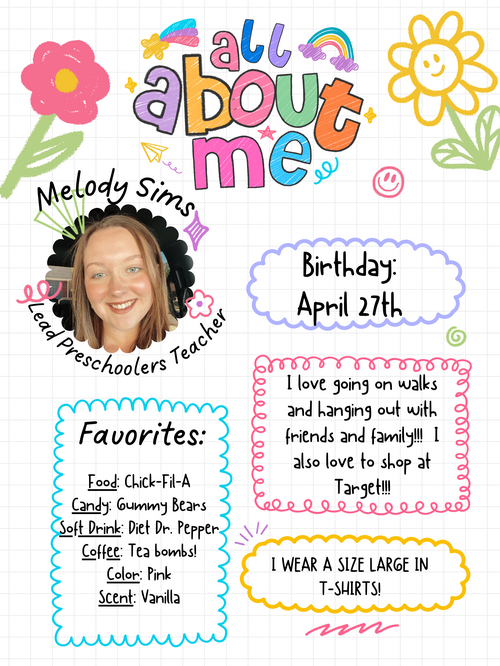 all
about
me
Melody Sims
Lead Preschoolers Teacher
Birthday:
April 27th
I love going on walks
and hanging out with
friends and family!!! I
also love to shop at
Target!!!
Favorites:
Food: Chick-Fil-A
Candy: Gummy Bears
Soft Drink: Diet Dr. Pepper
Coffee: Tea bombs!
Color: Pink
Scent: Vanilla
I WEAR A SIZE LARGE IN
T-SHIRTS!